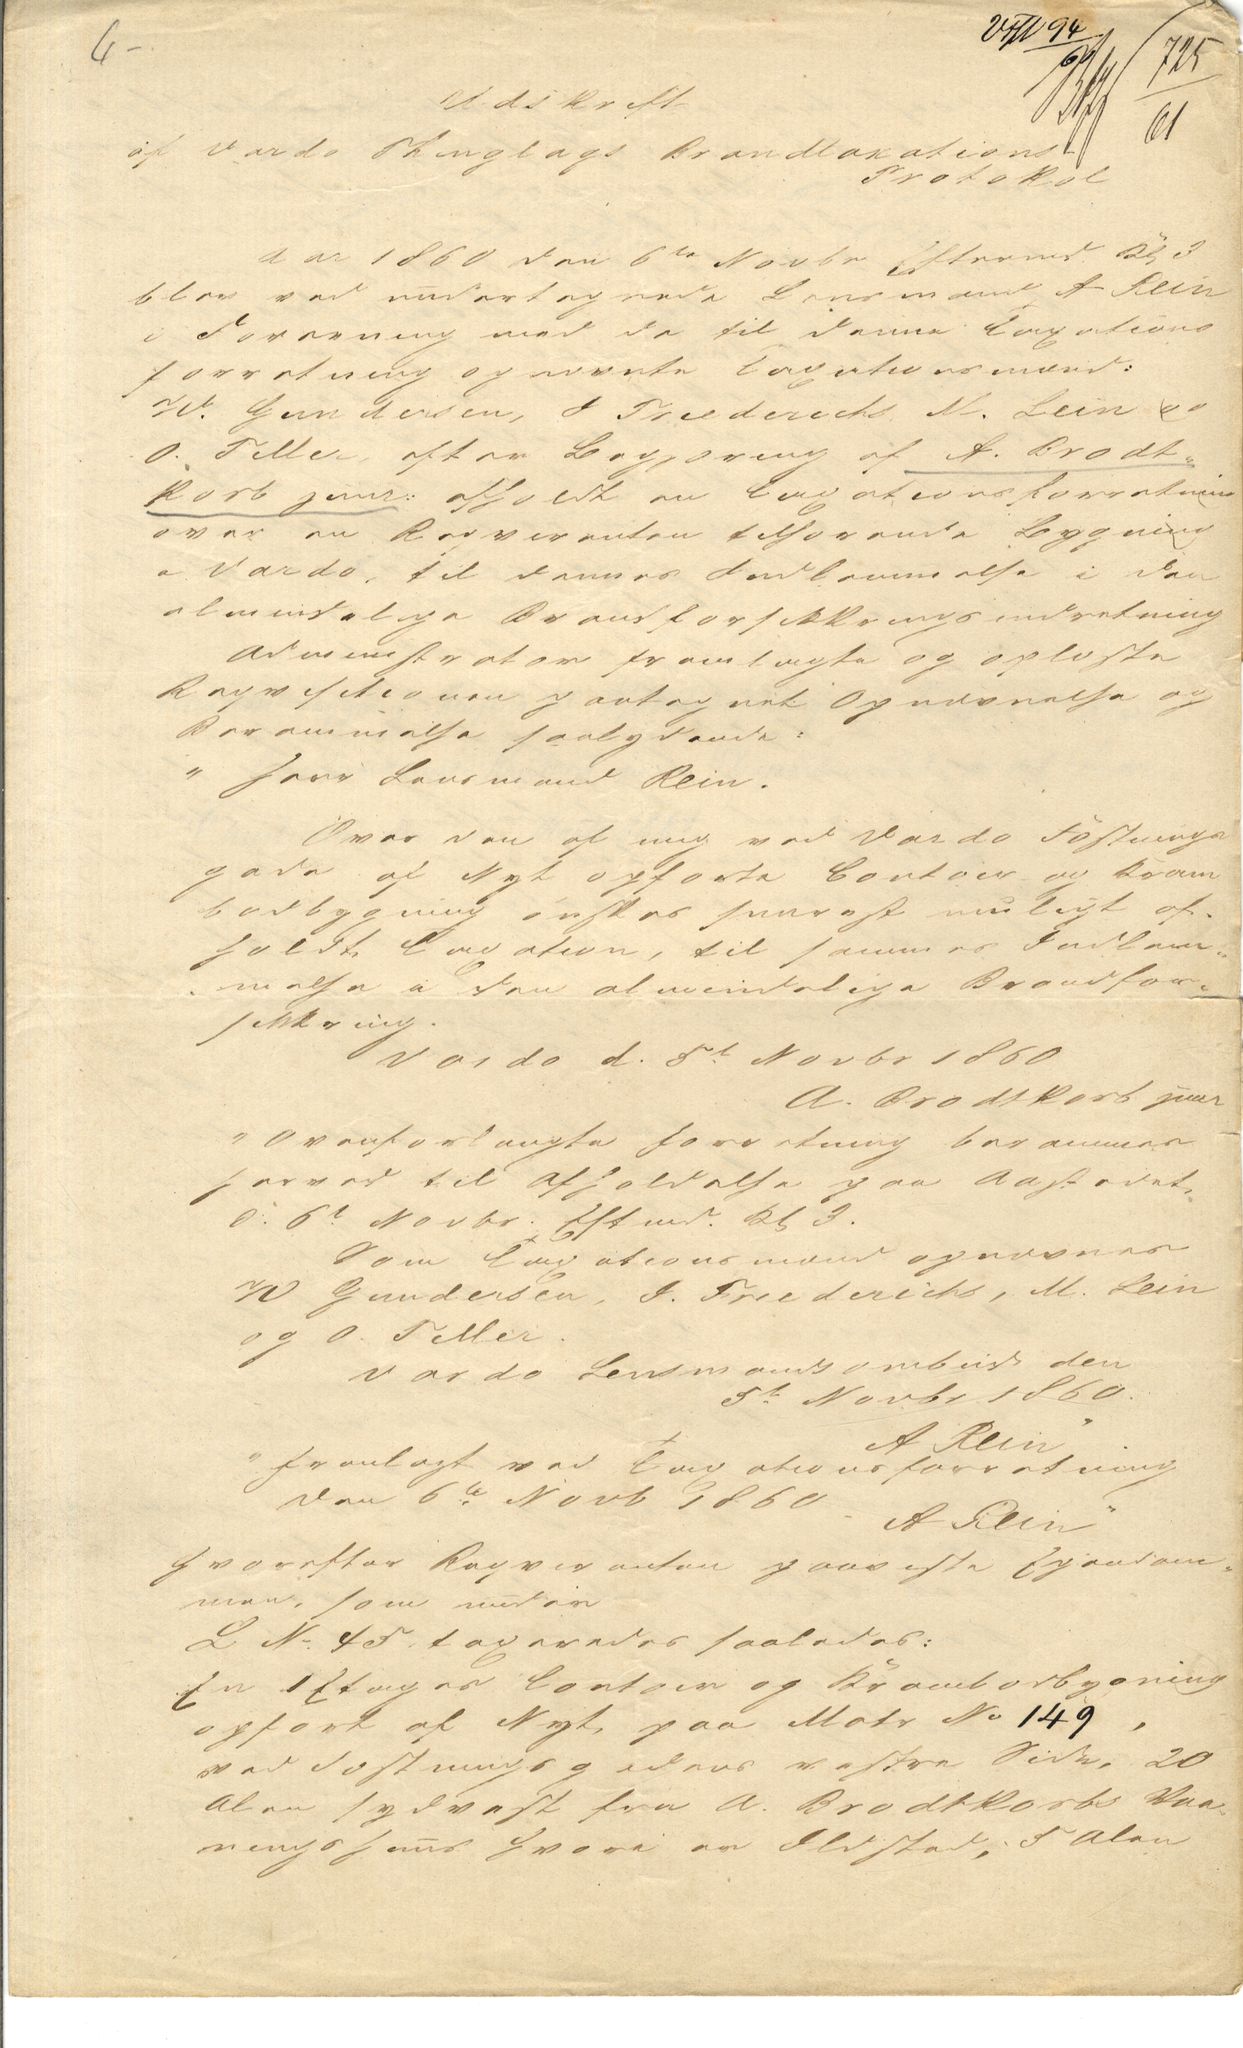 6 –
VIII 94
725
61
Udskrift
af Vardø Thinglags Brandtaxations
Protokol
Aar 1860 den 6te Novbr Eftermd. Kl 3
blev ved undertegnede Lensmand A Rein
i Forening med de til denne Taxations
forretning opnævnte Taxationsmænd:
W. Gundersen, I Friederichs M. Lein og
O. Teller, efter Begjæring af A. Brodt-
korb junr: afholdt en Taxationsforretning
over en Reqvirenten tilhørende Bygning
i Vardø, til dennes Indlemmelse i den
almindelige Brandforsikkringsindretning
Administrator fremlagte og oplæste
Reqvisitionen paategnet Opnævnelse og
Berammelse saalydende:
" Herr Lensmand Rein.
Over den af mig ved Vardø Fæstnings
gade af Nyt opførte Contoir og Kram
bodbygning ønskes snarest muligt af-
holdt Taxation, til sammes Indlem-
melse i den almindelige Brandfor-
sikkring.
Vardø d. 5t Novbr 1860
A. Brodtkorb junr
" Ovenforlangte Forretning berammes
herved til Afholdelse paa Aastedet,
d. 6t Novbr. Eftmd. Kl 3.
Som Taxationsmænd opnævnes
W Gundersen, I. Friederichs, M. Lein
og O. Teller.
Vardø Lensmandsombud den
5t Novbr 1860.
A Rein"
" Fremlagt ved Taxationsforretning
den 6te Novb 1860
A Rein"
Hvorefter Reqvirenten paaviste Eiendom-
men, som under
L No 45 taxeredes saaledes:
En 1 Etages Contoir og Krambodbygning
opført af Nyt, paa Matr No 149,
ved Fæstningsgadens vestre Side, 20
Alen sydvest fra A. Brodtkorbs Vaa-
ningshuus hvori er Ildsted, 5 Alen